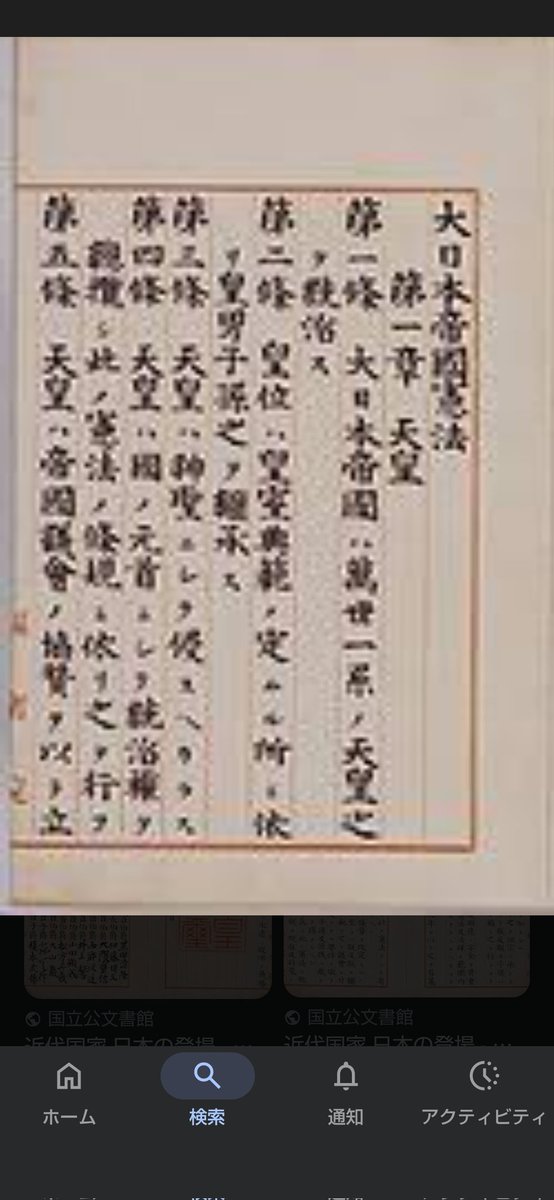 大日本帝國憲法
第一章 天皇
第一條 大日本帝國ハ萬世一系ノ天皇之
ヲ統治ス
第二條 皇位ハ皇室典範ノ定ムル所ニ依
リ皇男子孫之ヲ繼承ス
第三條 天皇ハ神聖ニシテ侵スヘカラス
第四條 天皇ハ國ノ元首ニシテ統治權ヲ
總攬シ此ノ憲法ノ條規ニ依リ之ヲ行フ
第五條 天皇ハ帝國議會ノ協贊ヲ以テ立
国立公文書館
国立公文書館
近代国家 日本の登場 - …
近代国家 日本の登場 - …
ホーム
検索
通知
アクティビティ